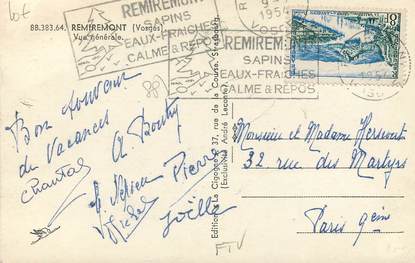 88.383.64. REMIREMONT (Vosges)
Vue générale.
REMIREMONT
SAPINS
EAUX-FRAICHES
CALME & REPOS
REMIREMONT
SAPINS
EAUX-FRAICHES
CALME & REPOS
Bon souvenir
de Vacances
Chantal
Pierre
Michel
Joëlle
Editions La Cigogne 37, rue de la Course, Strasbourg
(Exclusivité André Leconte)
Monsieur et Madame
32 rue des Martyrs
Paris 9èm